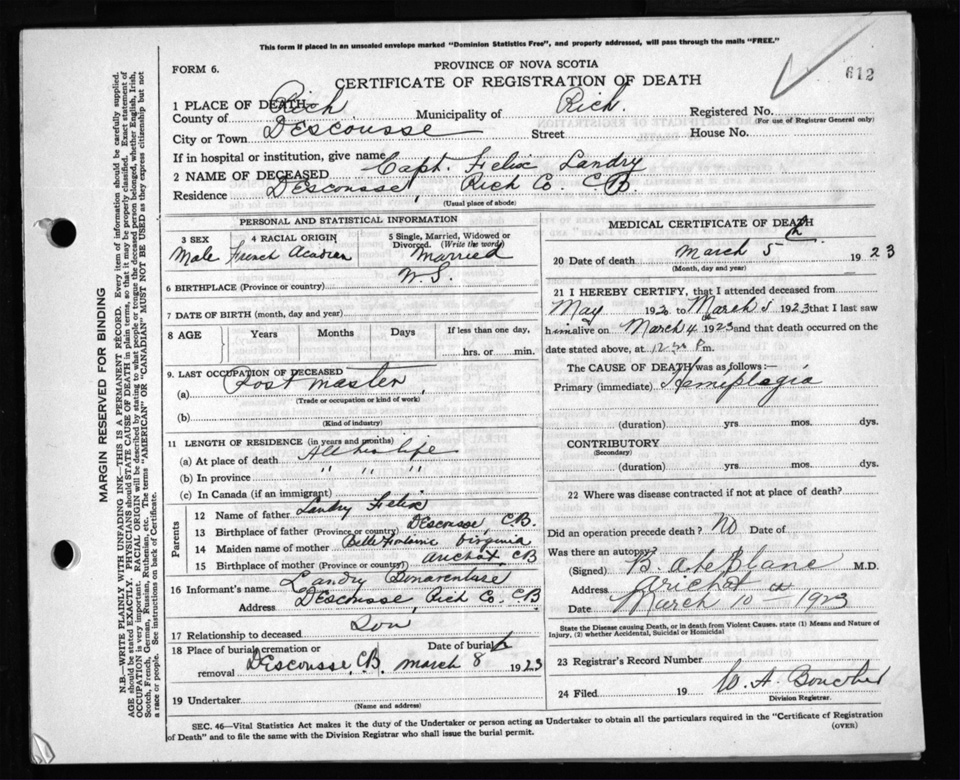 This form if placed in an unsealed envelope marked "Dominion Statistics Free", and properly addressed, will pass through the mails "FREE."
FORM 6.
PROVINCE OF NOVA SCOTIA
CERTIFICATE OF REGISTRATION OF DEATH
612
1 PLACE OF DEATH
County of Rich Municipality of Rich. Registered No.
(For use of Registrar General only)
City or Town Descousse Street House No.
If in hospital or institution, give name
2 NAME OF DECEASED Capt. Felix Landry
Residence Descousse, Rich Co. C.B.
(Usual place of abode)
PERSONAL AND STATISTICAL INFORMATION
3 SEX 4 RACIAL ORIGIN 5 Single, Married, Widowed or Divorced. (Write the word)
Male French Acadien Married
6 BIRTHPLACE (Province or country) N.S.
7 DATE OF BIRTH (month, day and year)
8 AGE Years Months Days If less than one day,
hrs. or min.
9. LAST OCCUPATION OF DECEASED
(a) Post master
(Trade or occupation or kind of work)
(b)
(Kind of industry)
11 LENGTH OF RESIDENCE (in years and months)
(a) At place of death All his life
(b) In province " " "
(c) In Canada (if an immigrant)
Parents
12 Name of father Landry Felix
13 Birthplace of father (Province or country) Descousse, C.B.
14 Maiden name of mother Bellefontaine Virginia
15 Birthplace of mother (Province or country) Arichat, CB
16 Informant's name Landry Bonaventure
Address Descousse, Rich Co. CB
17 Relationship to deceased Son
18 Place of burial, cremation or Date of burial
removal Descousse C.B. March 8 1923
19 Undertaker
(Name and address)
MEDICAL CERTIFICATE OF DEATH
20 Date of death March 5th 1923
(Month, day and year)
21 I HEREBY CERTIFY, that I attended deceased from
May 1920 to March 5 1923 that I last saw
him alive on March 4 1923 and that death occurred on the
date stated above, at P m.
The CAUSE OF DEATH was as follows:—
Primary (immediate) Hemiplagia
(duration) yrs. mos. dys.
CONTRIBUTORY
(Secondary)
(duration) yrs. mos. dys.
22 Where was disease contracted if not at place of death?
Did an operation precede death? No Date of
Was there an autopsy?
(Signed) B. A. LeBlanc M.D.
Address Arichat
Date March 10th 1923
State the Disease causing Death, or in death from Violent Causes. state (1) Means and Nature of
Injury, (2) whether Accidental, Suicidal or Homicidal
23 Registrar's Record Number
24 Filed 19 W. A. Boucher
Division Registrar.
SEC. 46—Vital Statistics Act makes it the duty of the Undertaker or person acting as Undertaker to obtain all the particulars required in the "Certificate of Registration
of Death" and to file the same with the Division Registrar who shall issue the burial permit.
(OVER)
MARGIN RESERVED FOR BINDING
N.B.—WRITE PLAINLY WITH UNFADING INK—THIS IS A PERMANENT RECORD. Every item of information should be carefully supplied.
AGE should be stated EXACTLY. PHYSICIANS should STATE CAUSE OF DEATH in plain terms, so that it may be properly classified. Exact statement of
OCCUPATION is very important. RACIAL ORIGIN will be described by stating to what people or tongue the deceased person belonged, whether English, Irish,
Scotch, French, German, Russian, Ruthenian, etc. The terms "AMERICAN" OR "CANADIAN" MUST NOT BE USED as they express citizenship but not
a race or people. See instructions on back of Certificate.